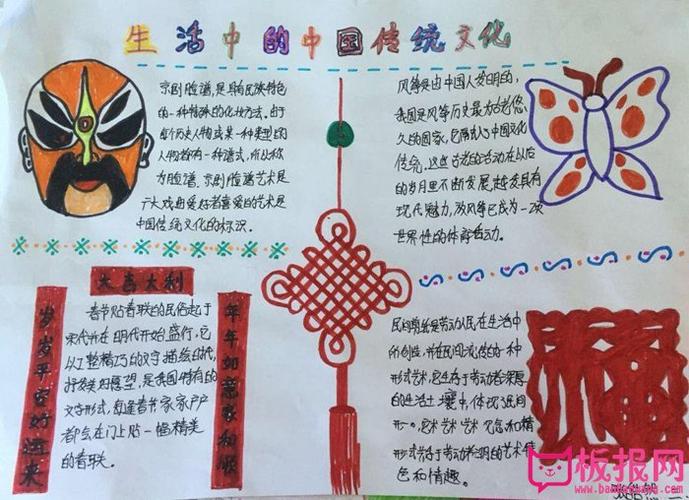 生活中的中国传统文化
京剧脸谱,是具有民族特色
的一种特殊的化妆方法。由于
每个历史人物或某一种类型的
人物都有一种谱式,所以称
为脸谱。京剧脸谱艺术是
广大戏曲爱好者喜爱的艺术是
中国传统文化的标识。
风筝是由中国人发明的,
我国是风筝历史最为古老悠
久的国家,
传统,这些古老的活动在以后
的岁月里不断发展,越发具有
现代魅力,放风筝已成为一项
世界性的体育活动。
大吉大利
岁岁平安好运来
年年如意家和顺
春节贴春联的民俗起于
宋代并在明代开始盛行,它
以工整精巧的文字描绘时代,
抒发美好愿望,是我国特有的
文学形式,每逢春节家家户户
都会在门上贴一幅精美
的春联。
民间剪纸是劳动人民在生活中
所创造,并在民间流传的一种
形式艺术,它生存于劳动者深厚
的生活土壤中,体现了民间
艺术 艺术 观念和精
色和情趣。
福
板报网